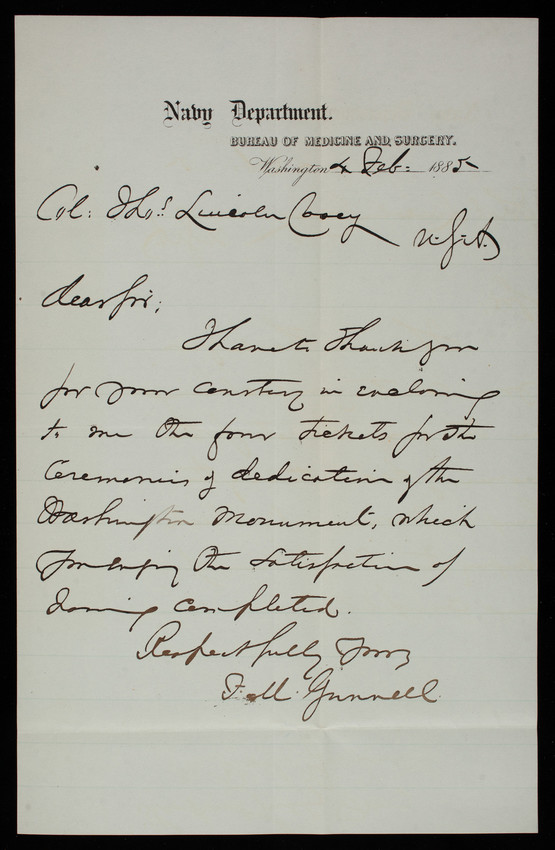 Navy Department.
BUREAU OF MEDICINE AND SURGERY.
Washington 4 Feb: 1885
Col: Thos. Lincoln Casey
U.S.A.
Dear Sir;
I have to thank you
for your courtesy in enclosing
to me the four tickets for the
Ceremonies of dedication of the
Washington Monument, which
you enjoy the satisfaction of
having completed.
Respectfully Yours
F. M. Gunnell